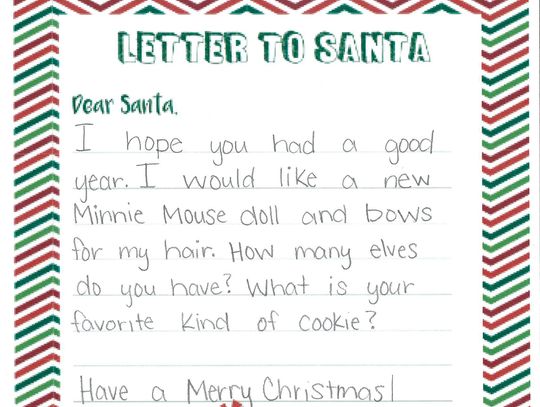 LETTER TO SANTA
Dear Santa,
I hope you had a good
year. I would like a new
Minnie Mouse doll and bows
for my hair. How many elves
do you have? What is your
favorite kind of cookie?
Have a Merry Christmas!